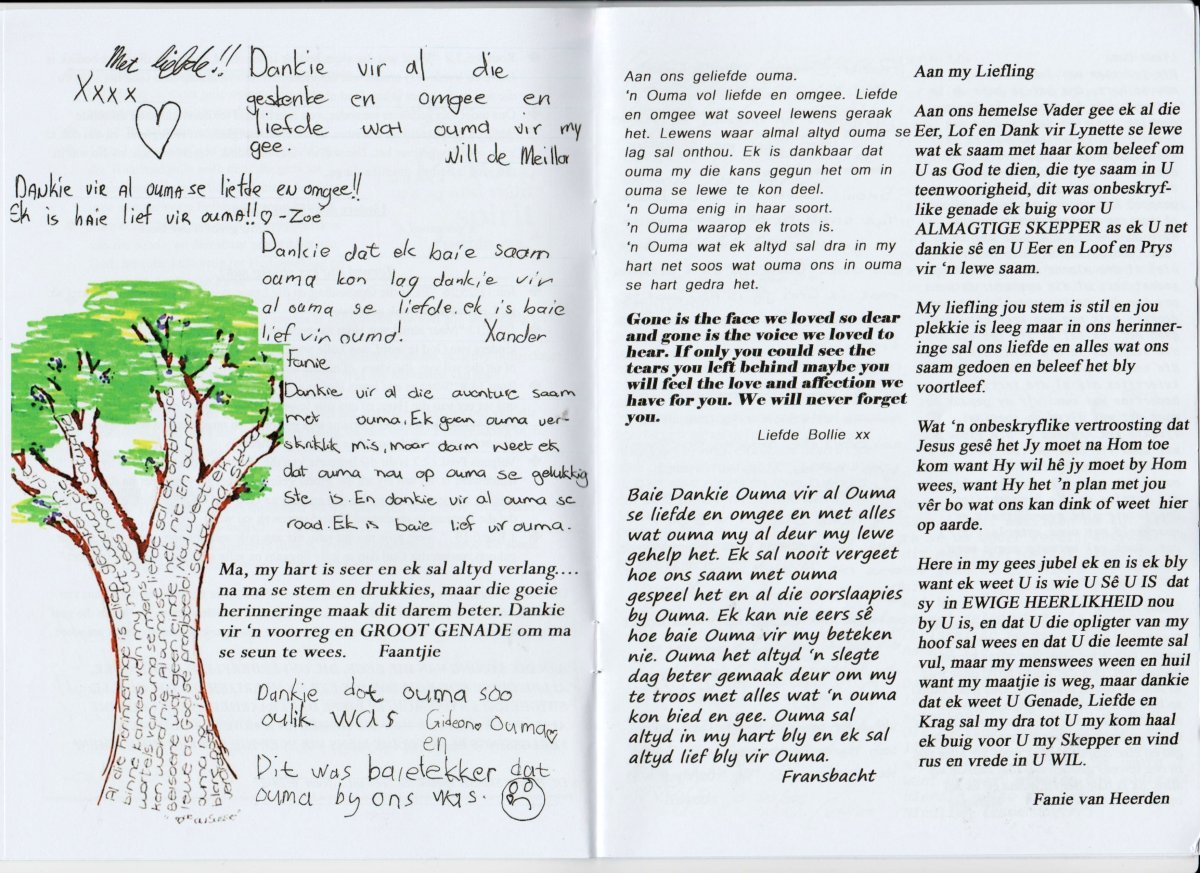 Met liefde!!
Xxxx
Dankie vir al die
geskenke en omgee en
liefde wat ouma vir my
gee.
Will de Meillor
DANKIE VIR AL OUMA SE liefde EN OMGEE!!
Ek is BAIE lief VIR OUMA!! -Zoë
Dankie dat ek baie saam
ouma kon lag dankie vir
al ouma se liefde. ek is baie
lief vir ouma! Xander
Fanie
Dankie vir al die avonture saam
met ouma. Ek gaan ouma ver-
skriklik mis, maar darm weet ek
dat ouma nou op ouma se gelukkig
ste is. En dankie vir al ouma se
raad. Ek is baie lief vir ouma.
Ma, my hart is seer en ek sal altyd verlang....
na ma se stem en drukkies, maar die goeie
herinneringe maak dit darem beter. Dankie
vir ‘n voorreg en GROOT GENADE om ma
se seun te wees. Faantjie
Dankie dat ouma soo
oulik was Gideon Ouma
en
Dit was baie lekker dat
ouma by ons was.
Aan ons geliefde ouma.
'n Ouma vol liefde en omgee. Liefde
en omgee wat soveel lewens geraak
het. Lewens waar almal altyd ouma se
lag sal onthou. Ek is dankbaar dat
ouma my die kans gegun het om in
ouma se lewe te kon deel.
'n Ouma enig in haar soort.
'n Ouma waarop ek trots is.
'n Ouma wat ek altyd sal dra in my
hart net soos wat ouma ons in ouma
se hart gedra het.
Gone is the face we loved so dear
and gone is the voice we loved to
hear. If only you could see the
tears you left behind maybe you
will feel the love and affection we
have for you. We will never forget
you.
Liefde Bollie xx
Baie Dankie Ouma vir al Ouma
se liefde en omgee en met alles
wat ouma my al deur my lewe
gehelp het. Ek sal nooit vergeet
hoe ons saam met ouma
gespeel het en al die oorslaapies
by Ouma. Ek kan nie eers sê
hoe baie Ouma vir my beteken
nie. Ouma het altyd ‘n slegte
dag beter gemaak deur om my
te troos met alles wat ‘n ouma
kon bied en gee. Ouma sal
altyd in my hart bly en ek sal
altyd lief bly vir Ouma.
Fransbacht
Aan my Liefling
Aan ons hemelse Vader gee ek al die
Eer, Lof en Dank vir Lynette se lewe
wat ek saam met haar kom beleef om
U as God te dien, die tye saam in U
teenwoorigheid, dit was onbeskryf-
like genade ek buig voor U
ALMAGTIGE SKEPPER as ek U net
dankie sê en U Eer en Loof en Prys
vir ‘n lewe saam.
My liefling jou stem is stil en jou
plekkie is leeg maar in ons herinner-
inge sal ons liefde en alles wat ons
saam gedoen en beleef het bly
voortleef.
Wat ‘n onbeskryflike vertroosting dat
Jesus gesê het Jy moet na Hom toe
kom want Hy wil hê jy moet by Hom
wees, want Hy het ’n plan met jou
vêr bo wat ons kan dink of weet hier
op aarde.
Here in my gees jubel ek en is ek bly
want ek weet U is wie U Sê U IS dat
sy in EWIGE HEERLIKHEID nou
by U is, en dat U die opligter van my
hoof sal wees en dat U die leemte sal
vul, maar my menswees ween en huil
want my maatjie is weg, maar dankie
dat ek weet U Genade, Liefde en
Krag sal my dra tot U my kom haal
ek buig voor U my Skepper en vind
rus en vrede in U WIL.
Fanie van Heerden